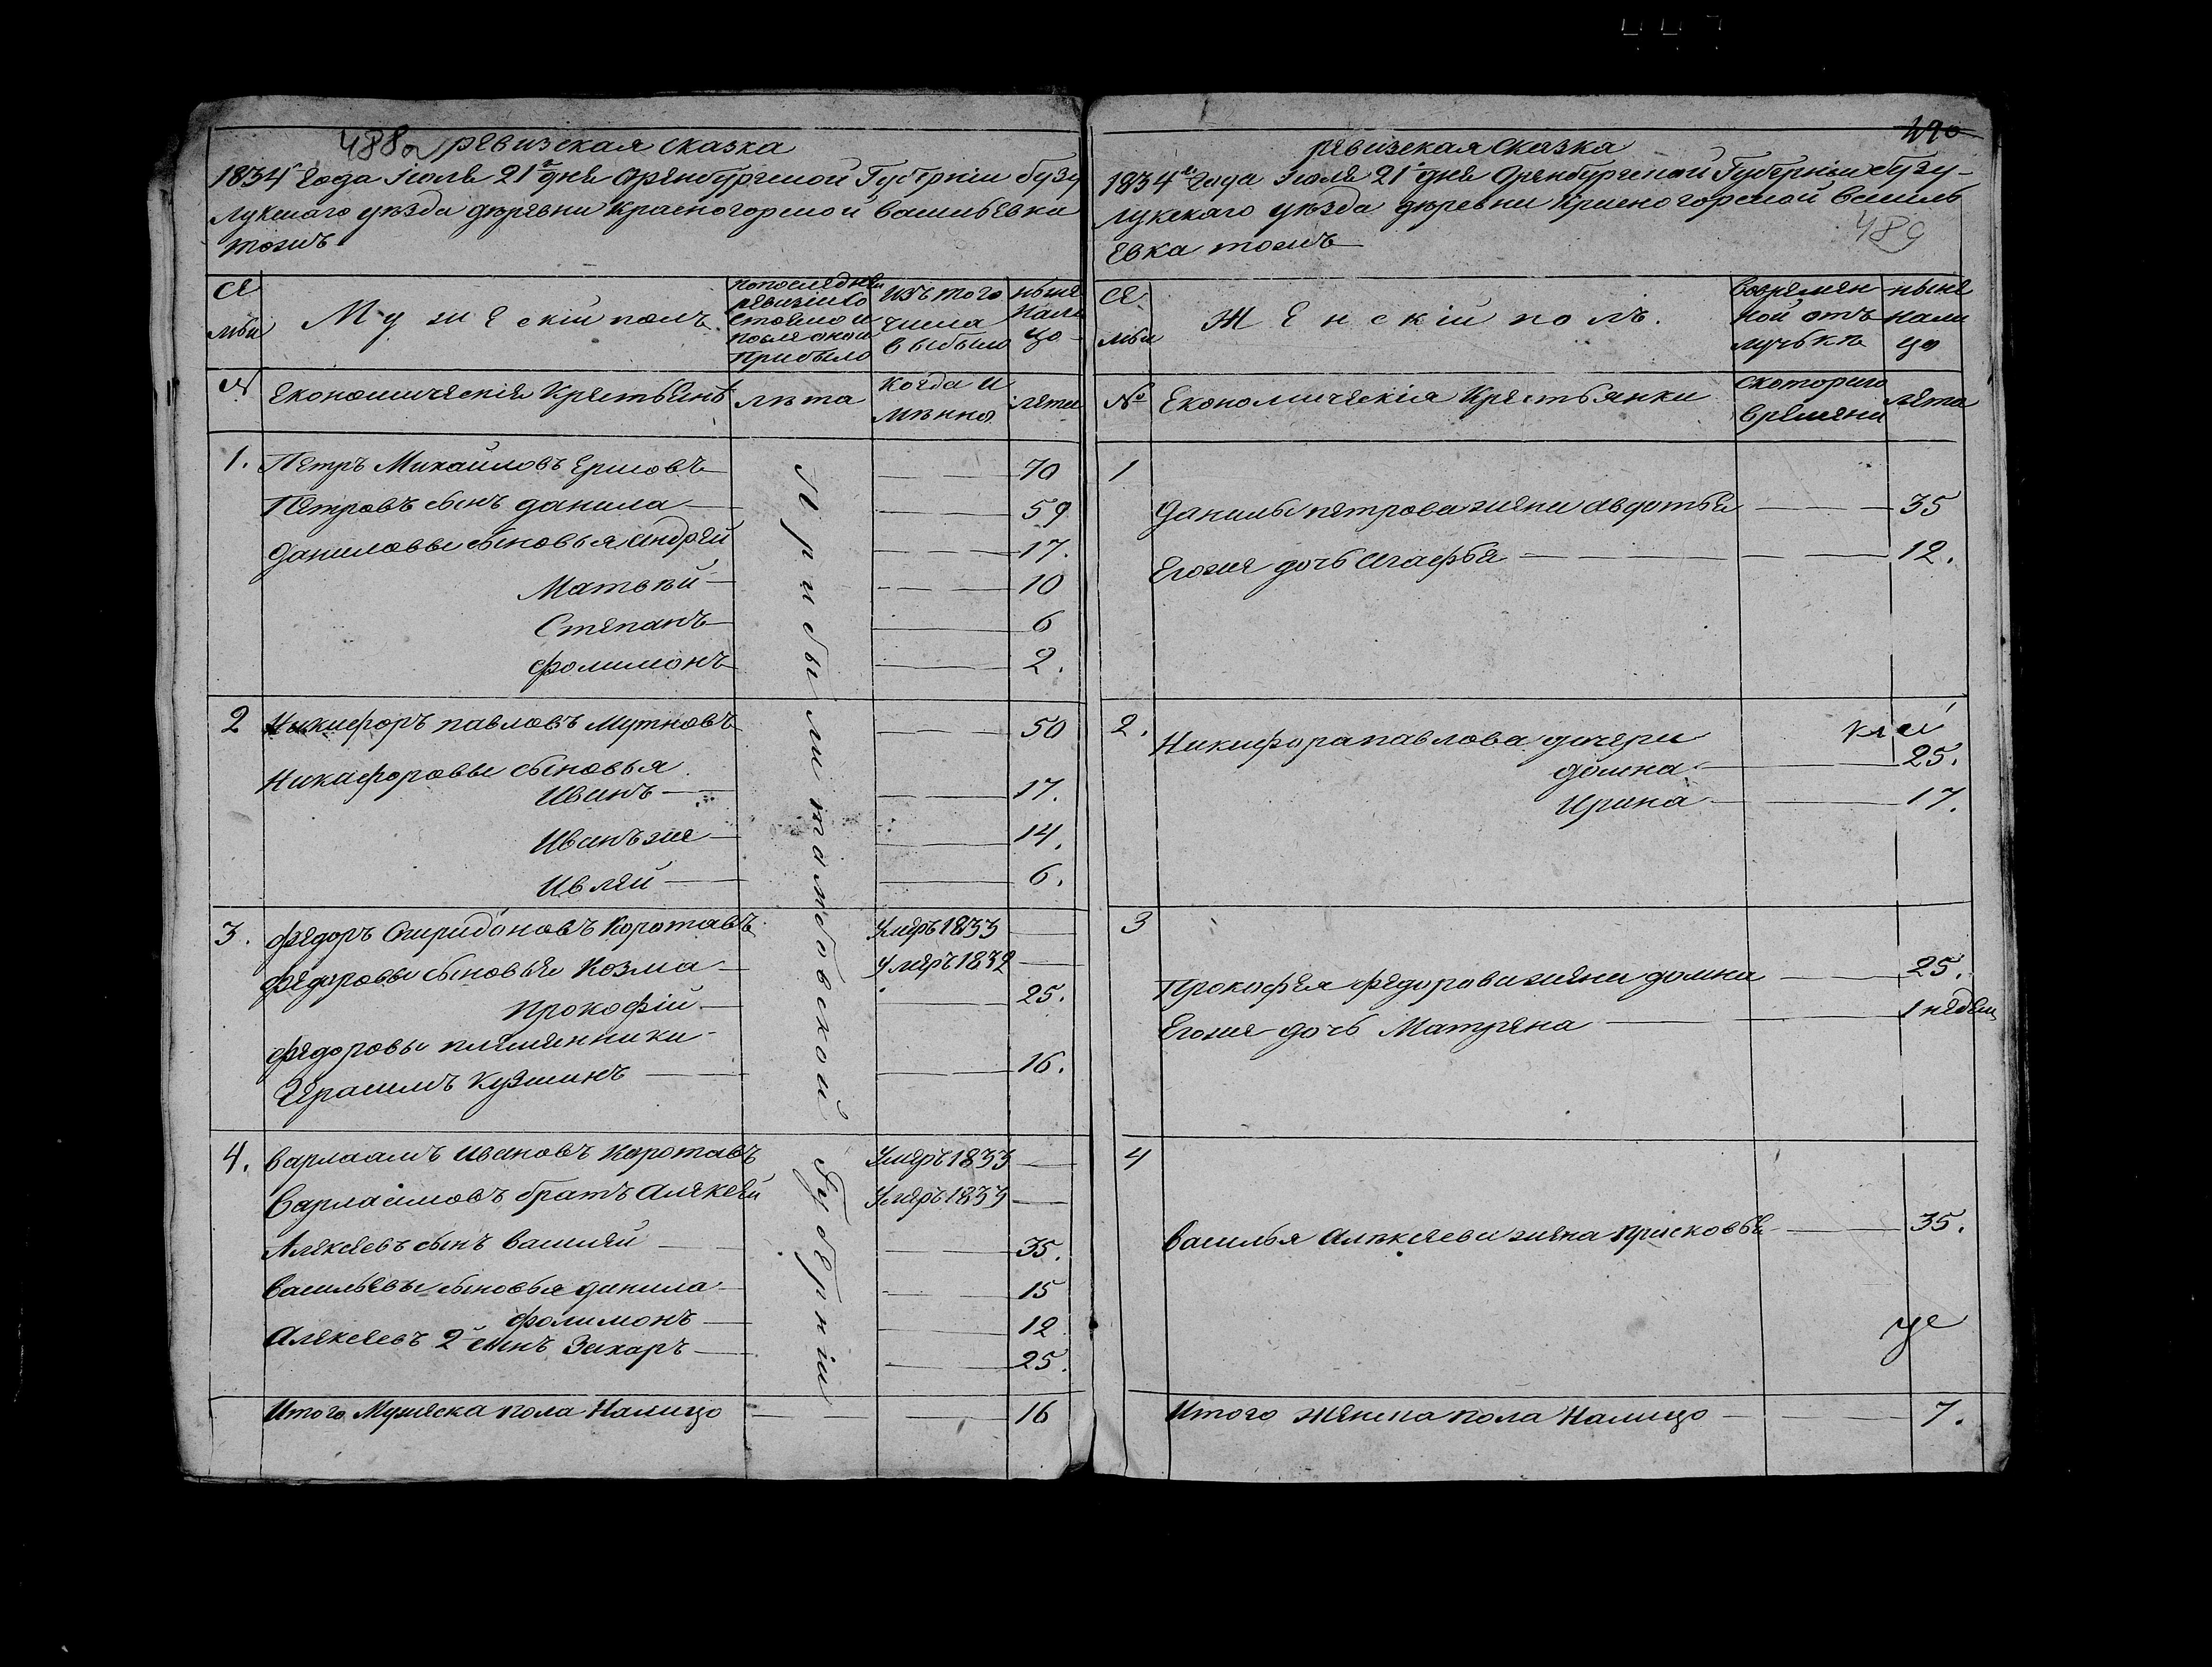 488а ревизская сказка
1834 года Июля 21 дня Оренбургской Губернии бузу
лукскаго уезда деревни Красногорской васильевка
тожъ
се
мьи
Мужескiй полъ
по последней
ревизiи со
стояло и
после оной
прибыло
изъ того
числа
выбыло
ныне
нали
цо
№ Економическiя Крестьяне
лета
когда и
менно
лета
1. Петръ Михайловъ Ершовъ 70
Петровъ сынъ данила 59
даниловы сыновья андрей 17.
Матвей 10
Степанъ 6
фолимонъ 2.
2 Никифоръ павловъ Мутновъ 50
Никифоровы сыновья
Иванъ 17.
Иванъ же 14.
Ивлей 6.
3. федоръ Спиридоновъ Коротавъ Умеръ 1833
федоровы сыновья Козма умеръ 1832
Прокофiй 25.
Федоровы племянники
Герасимъ Кузминъ 16.
4. варлаамъ Ивановъ Каротавъ Умеръ 1833
Варлаамовъ братъ алексей Умеръ 1833
Алексеевъ сынъ василей 35.
васильевы сыновья данила 15
фолимонъ 12
алексеевъ 2й сынъ Захаръ 25.
Прибыли тамбовской губернiи
Итого Мужеска пола Налицо 16
490
ревизская сказка
1834 года Июля 21 дня Оренбургской Губернiи бузу-
лукскаго уезда деревни Красногорской василь
евка тожъ
489
се
мьи
Женскiй полъ.
во времен
ной отъ
лучьке
ныне
нали
цо
№ Економическiя Крестьянки
с котораго
времени
лета
1
данилы петрова жена авдотья 35
Егоже дочь агафья 12.
2. Никифора павлова дочери
домна 25.
Ирина 17.
3
Прокофея федорова жена домна 25.
Егоже дочь Матрена 1 недели
4
василья алексеева жена присковья 35.
Итого женска пола Налицо 7.